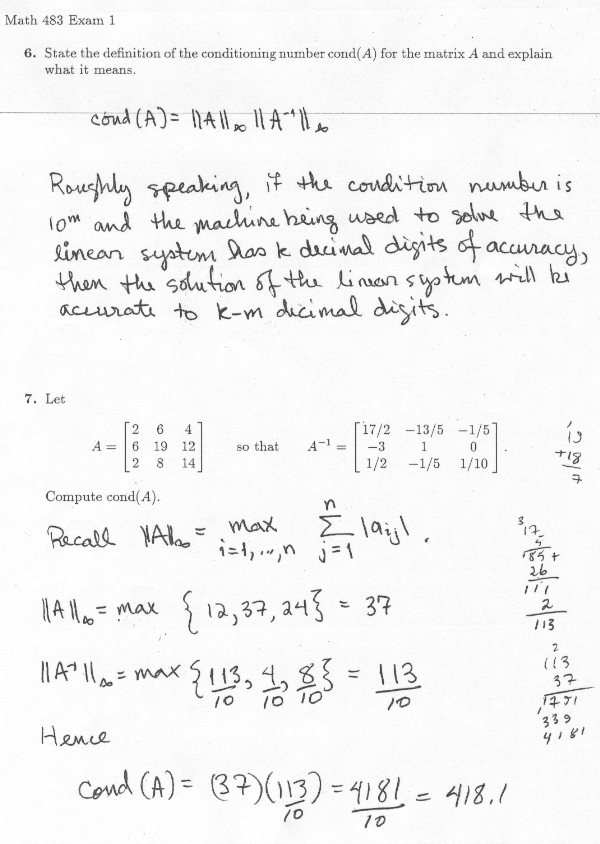 Math 483 Exam 1
6. State the definition of the conditioning number cond(A) for the matrix A and explain
what it means.
cond(A) = ||A||∞ ||A⁻¹||∞
Roughly speaking, if the condition number is
10ᵐ and the machine being used to solve the
linear system has k decimal digits of accuracy,
then the solution of the linear system will be
accurate to k-m decimal digits.
7. Let
A = [2 6 4; 6 19 12; 2 8 14] so that A⁻¹ = [17/2 −13/5 −1/5; −3 1 0; 1/2 −1/5 1/10].
+18
7
Compute cond(A).
Recall ||A||∞ = max i=1,...,n Σ j=1 n |aij|.
3
17
5
85+
26
111
2
113
||A||∞ = max {12, 37, 24} = 37
||A⁻¹||∞ = max {113/10, 4/10, 8/10} = 113/10
2
113
37
791
339
4181
Hence
cond(A) = (37)(113/10) = 4181/10 = 418.1